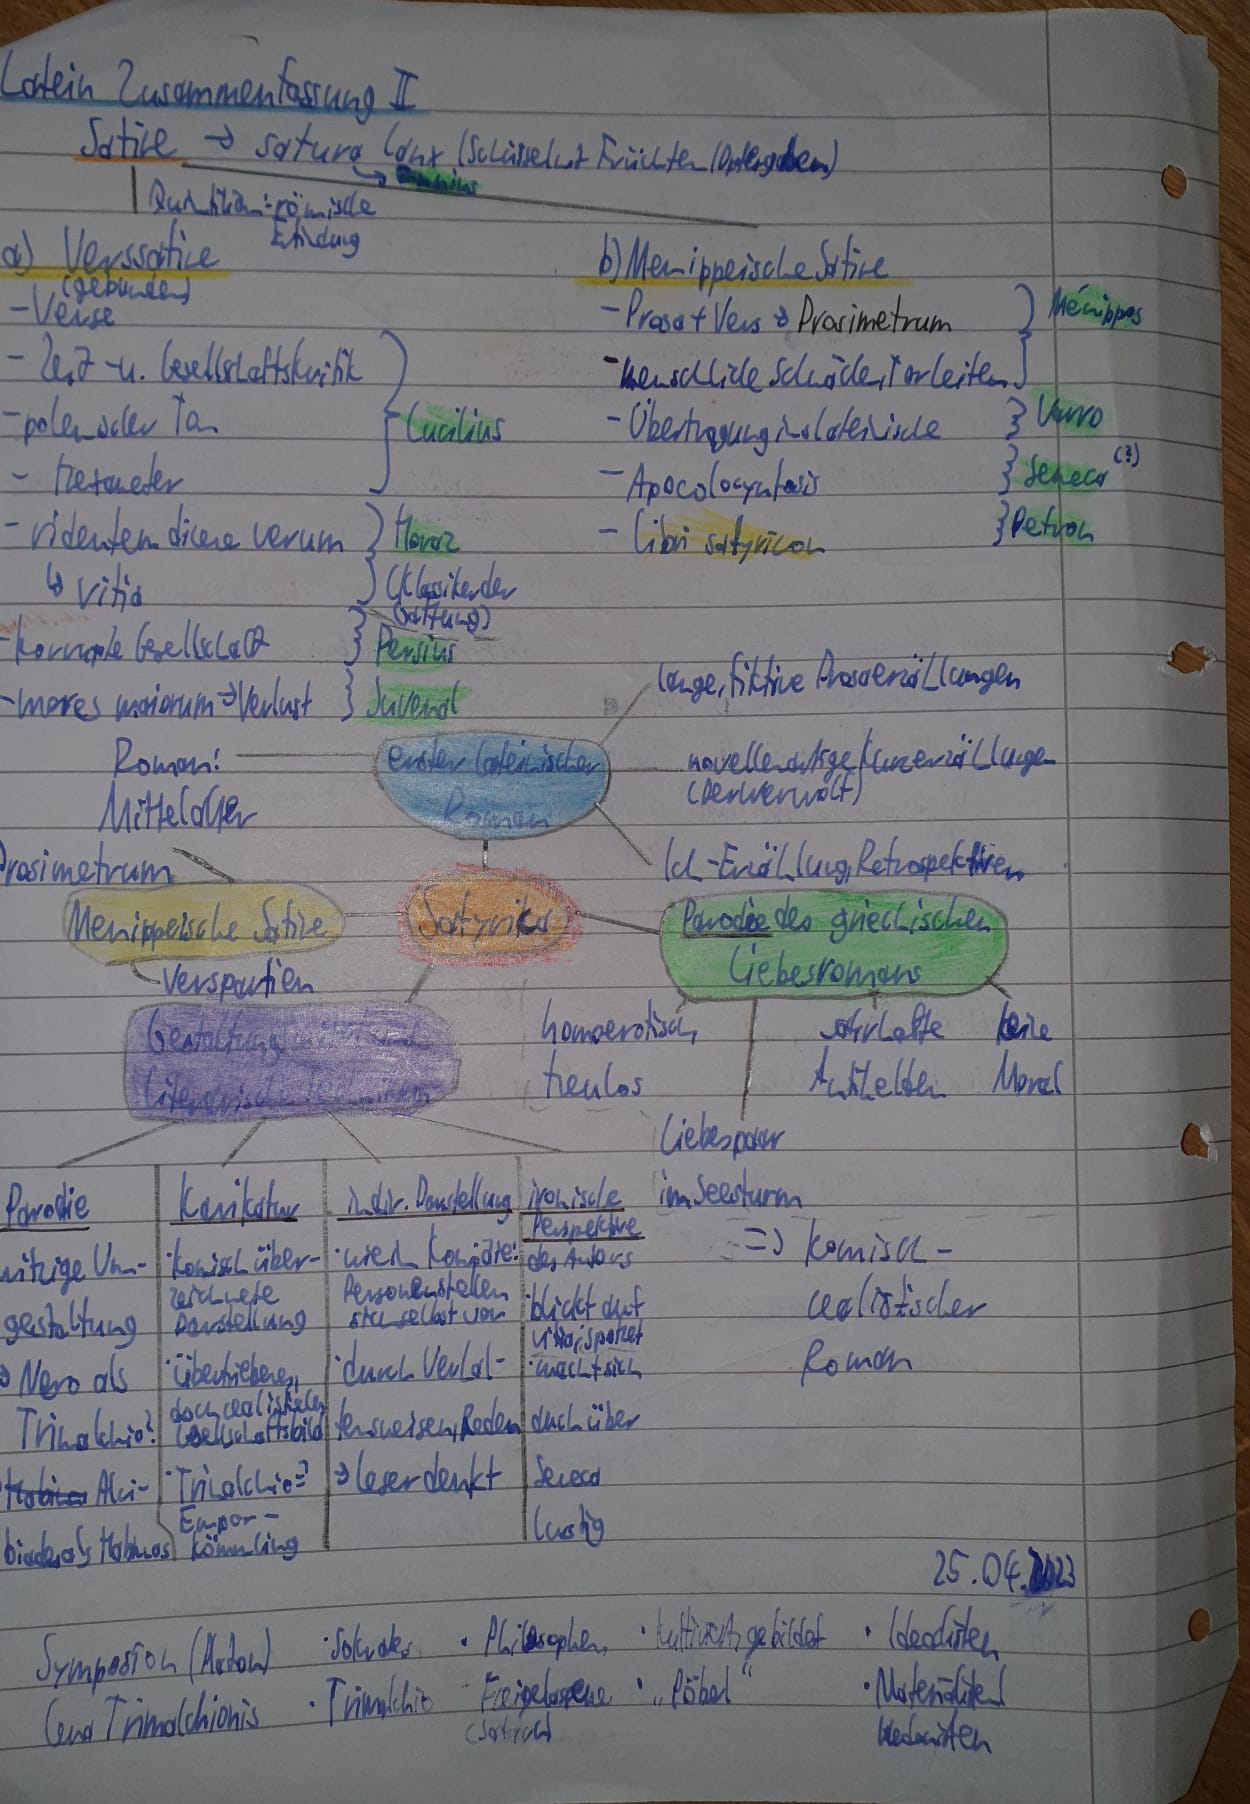 Latein Zusammenfassung II
Satire → satura lanx (Schüssel mit Früchten (Opfergaben)
↳ Ennius
Quintilian: römische
Erfindung
a) Verssatire
(gebunden)
- Verse
- Zeit- u. Gesellschaftskritik
- polemischer Ton
- Hexameter
Lucilius
- ridentem dicere verum
↳ vitia
Horaz
(Klassiker der
Gattung)
- korrupte Gesellschaft
Persius
- mores maiorum → Verlust
Juvenal
b) Menippeische Satire
- Prosa + Vers → Prosimetrum
- menschliche Schwächen, Torheiten
Menippos
- Übertragung ins Lateinische
Varro
- Apocolocyntosis
Seneca (?)
- libri satyricon
Petron
Roman:
Mittelalter
erster lateinischer
Roman
lange, fiktive Prosaerzählungen
novellenartige Kurzerzählungen
(Werwolf)
Ich-Erzählung, Retrospektive
Prosimetrum
Menippeische Satire
Verspartien
Satyrica
Parodie des griechischen
Liebesromans
homoerotisch
treulos
Liebespaar
im Seesturm
Antihelden
keine
Moral
=> komisch-
realistischer
Roman
Gestaltung
literarische
Parodie
witzige Um-
gestaltung
→ Nero als
Trimalchio?
Alci-
biades als Habinnas
Karikatur
· komisch über-
zeichnete
Darstellung
· übertriebenes,
doch realistisches
Gesellschaftsbild
· Trimalchio =
Empor-
kömmling
indir. Darstellung
· wie in Komödie:
Personen stellen
sich selbst vor
· durch Verhal-
tensweisen, Reden
→ Leser denkt
ironische
Perspektive
des Autors
· blickt auf
vitia, spottet
· macht sich
auch über
Seneca
lustig
25.04.2023
Symposion (Platon) · Sokrates · Philosophen · kultiviert, gebildet · Idealisten
Cena Trimalchionis · Trimalchio · Freigelassene · „Pöbel“ · Materialisten
Hedonisten